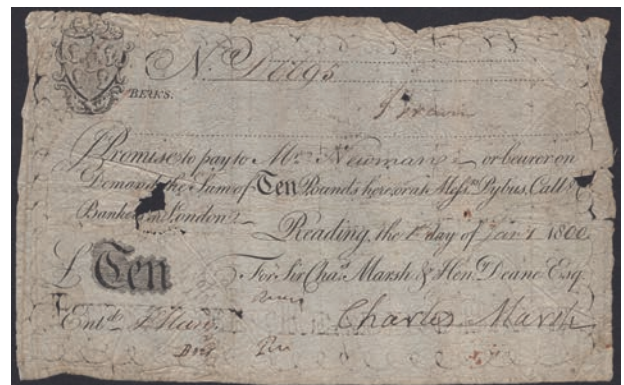 No.
BERKS.
I Promise to pay to Mr. Newman or bearer on
Demand the Sum of Ten Pounds here or at Messrs. Pybus, Call &
Bankers in London
Reading, the 1st day of Jany 1800
£ Ten For Sir Chas. Marsh & Heny. Deane Esq
Entd.
Charles Marsh